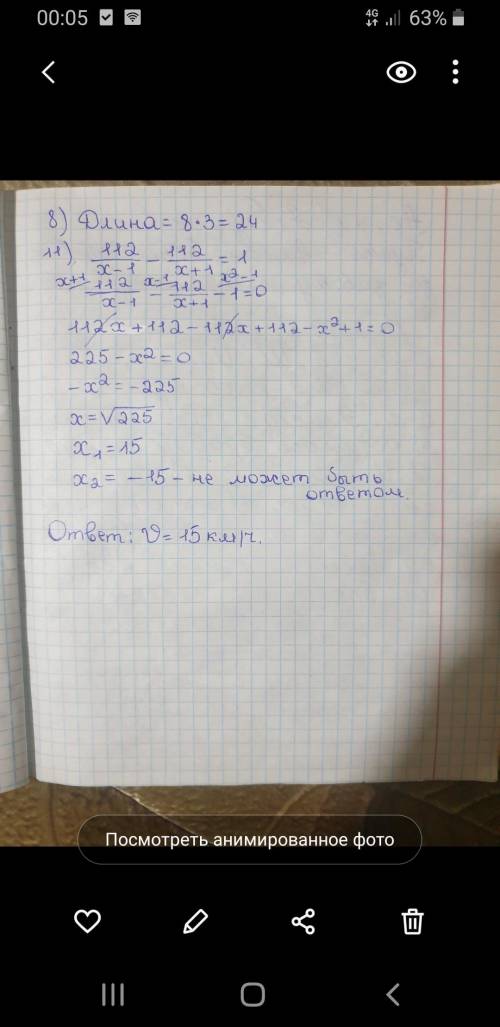 00:05 4G 63%
8) Длина = 8·3 = 24
11) 112/x-1 - 112/x+1 = 1
x+1 x-1 x²-1
112/x-1 - 112/x+1 - 1 = 0
112x + 112 - 112x + 112 - x² + 1 = 0
225 - x² = 0
-x² = -225
x = √225
x₁ = 15
x₂ = -15 - не может быть
ответом.
Ответ: V = 15 км/ч.
Посмотреть анимированное фото